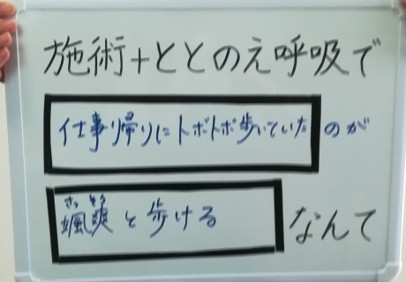 施術+ととのえ呼吸で
仕事帰りにトボトボ歩いていたのが
さっそう
颯爽と歩ける なんて